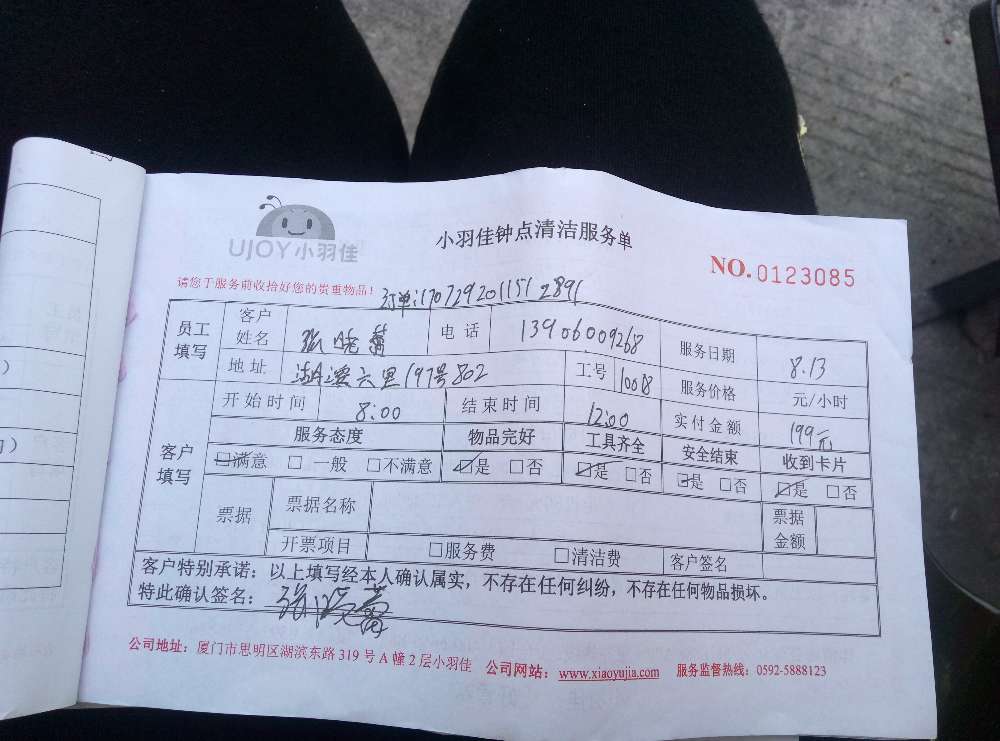 UJOY小羽佳
小羽佳钟点清洁服务单
NO.0123085
请您于服务前收拾好您的贵重物品！
订单:1707292011512891
员工填写 客户姓名 张晓 电话 13906009268 服务日期 8.13
地址 六里197号802 工号 1008 服务价格 元/小时
客户填写 开始时间 8:00 结束时间 12:00 实付金额 199元
服务态度 物品完好 工具齐全 安全结束 收到卡片
☑满意 □一般 □不满意 ☑是 □否 ☑是 □否 ☑是 □否 ☑是 □否
票据 票据名称 票据金额
开票项目 □服务费 □清洁费 客户签名
客户特别承诺：以上填写经本人确认属实，不存在任何纠纷，不存在任何物品损坏。
特此确认签名： 张晓
公司地址：厦门市思明区湖滨东路319号A幢2层小羽佳 公司网站：www.xiaoyujia.com 服务监督热线：0592-5888123